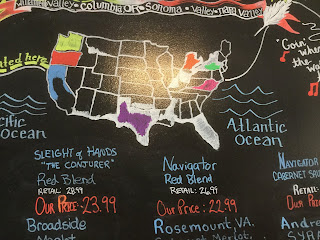 Willamette Valley • COLUMBIA OR • SONOMA • VALLEY • NAPA VALLEY
"Goin'
when
the
ated here
cific
Ocean
Atlantic
Ocean
SLEIGHT of HANDS
"THE CONJURER"
Red Blend
RETAIL: 28.99
OUR PRICE: 23.99
Broadside
Merlot
Navigator
Red Blend
RETAIL: 26.99
Our Price: 22.99
Rosemount, VA.
Merlot
NAVIGATOR
CABERNET SAU
RETAIL
OUR PRI
Andre
SYRA